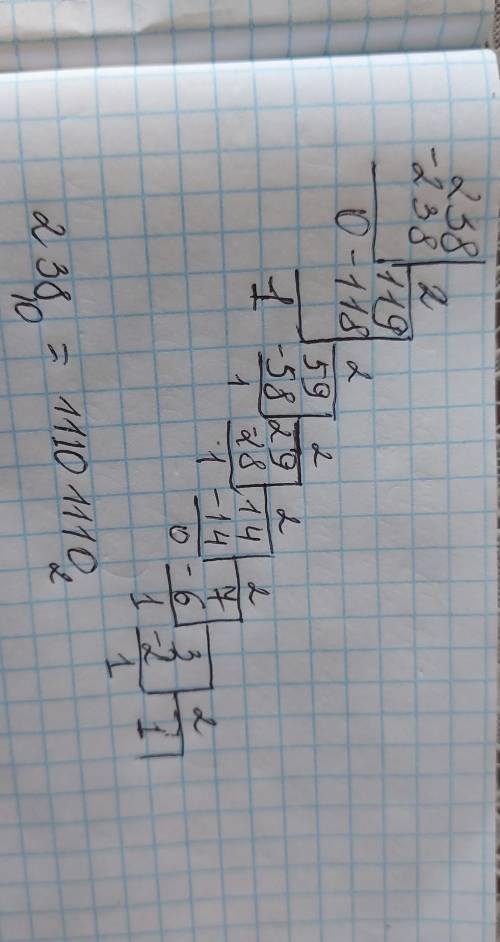 238 | 2
-238 | 119 | 2
0 -118 | 59 | 2
1 -58 | 29 | 2
1 28 | 14 | 2
1 -14 | 7 | 2
0 -6 | 3 | 2
1 -2 | 1
1
238₁₀ = 11101110₂